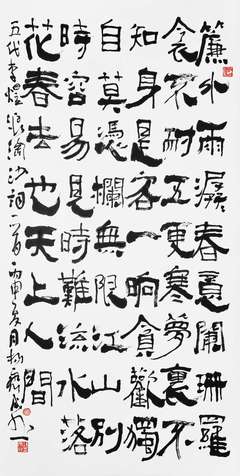 簾外雨潺春意闌珊羅
衾不耐五更寒夢裏不
知身是客一晌貪歡獨
自莫憑欄無限江山別
時容易見時難流水落
花春去也天上人間
五代李煜浪淘沙詞一首丙申夏月